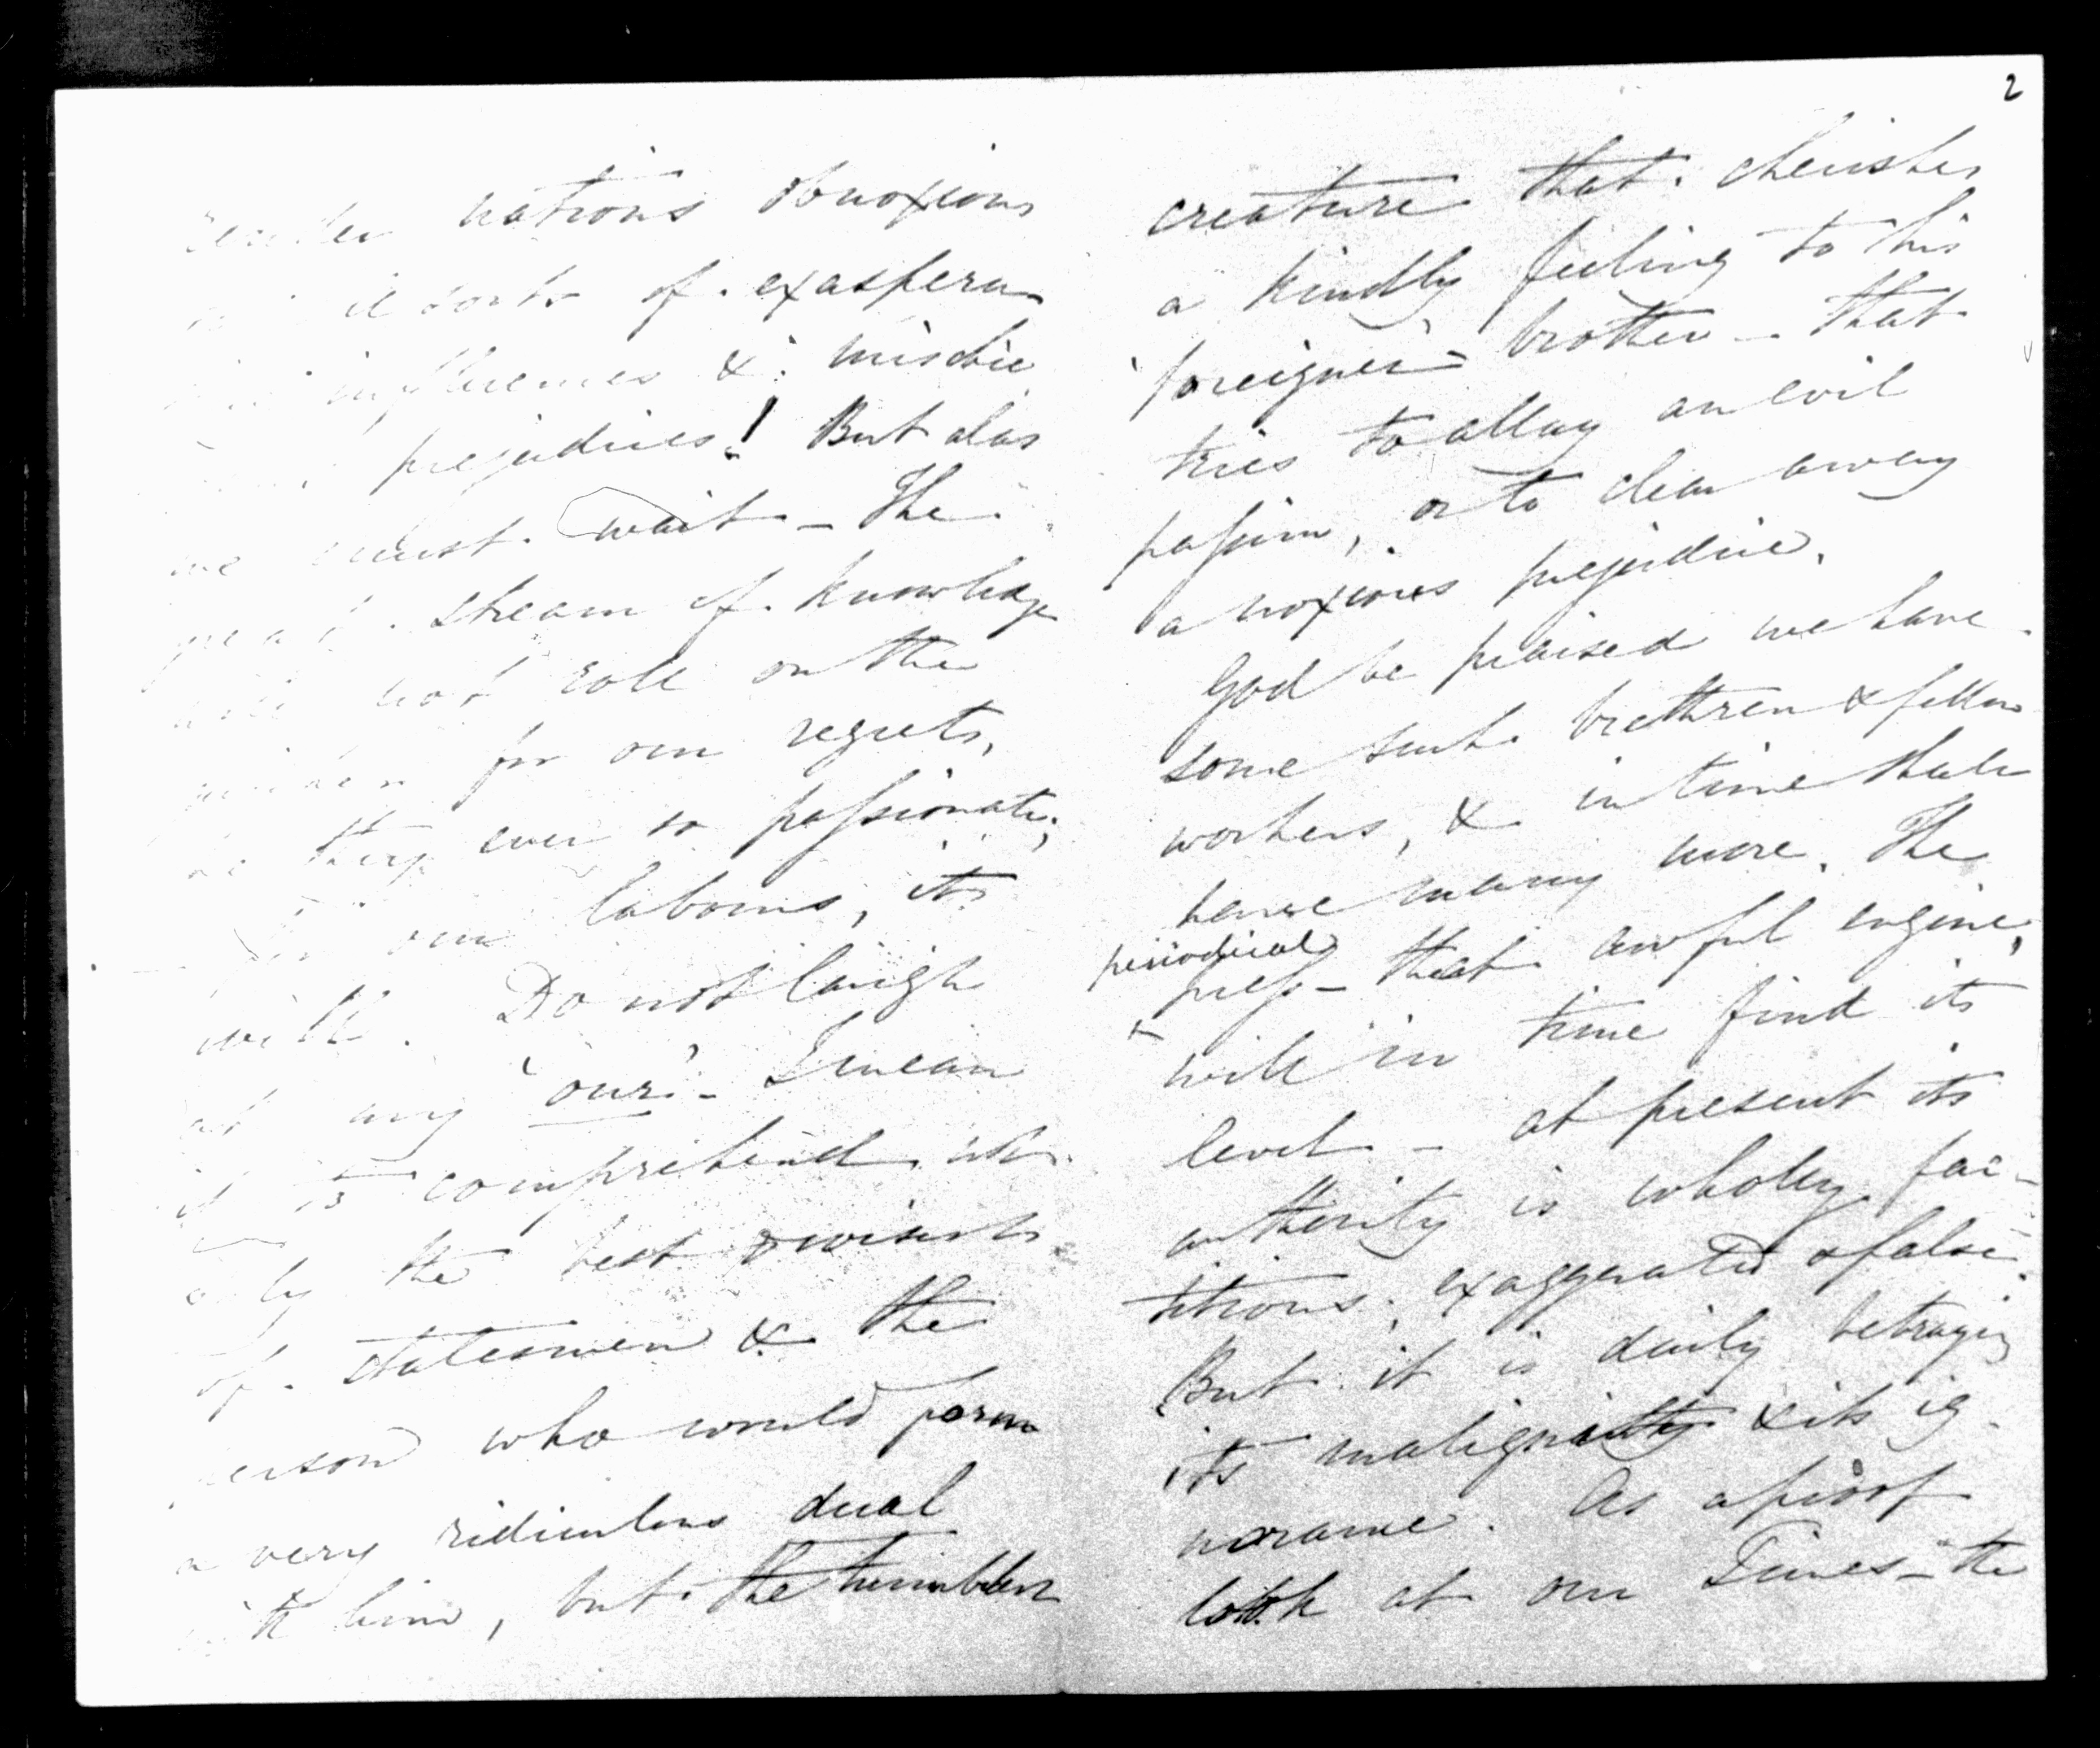 render nations obnoxious
to all sorts of exaspera-
influences & mischie
prejudices! But alas
we must wait – The
great stream of knowledge
will not roll on the
quicker for our regrets,
be they ever so passionate;
our labours, it
will. Do not laugh
at my 'our' – I mean
it to comprehend not
only the best & wisest
of statesmen & the
person who would form
a very ridiculous dual
with him, but the humblest
2
creature that cherishes
a kindly feeling to his
'foreigner' brother – that
tries to allay an evil
passion, or to clear away
a noxious prejudice.
God be praised we have
some such brethren & fellow
workers, & in time shall
have many more. The
periodical
press – that awful engine,
will in time find its
level – at present its
authority is wholly fac-
titious, exaggerated & false.
But it is daily betraying
its malignity & its ig-
norance. As a proof
look at our Times – the